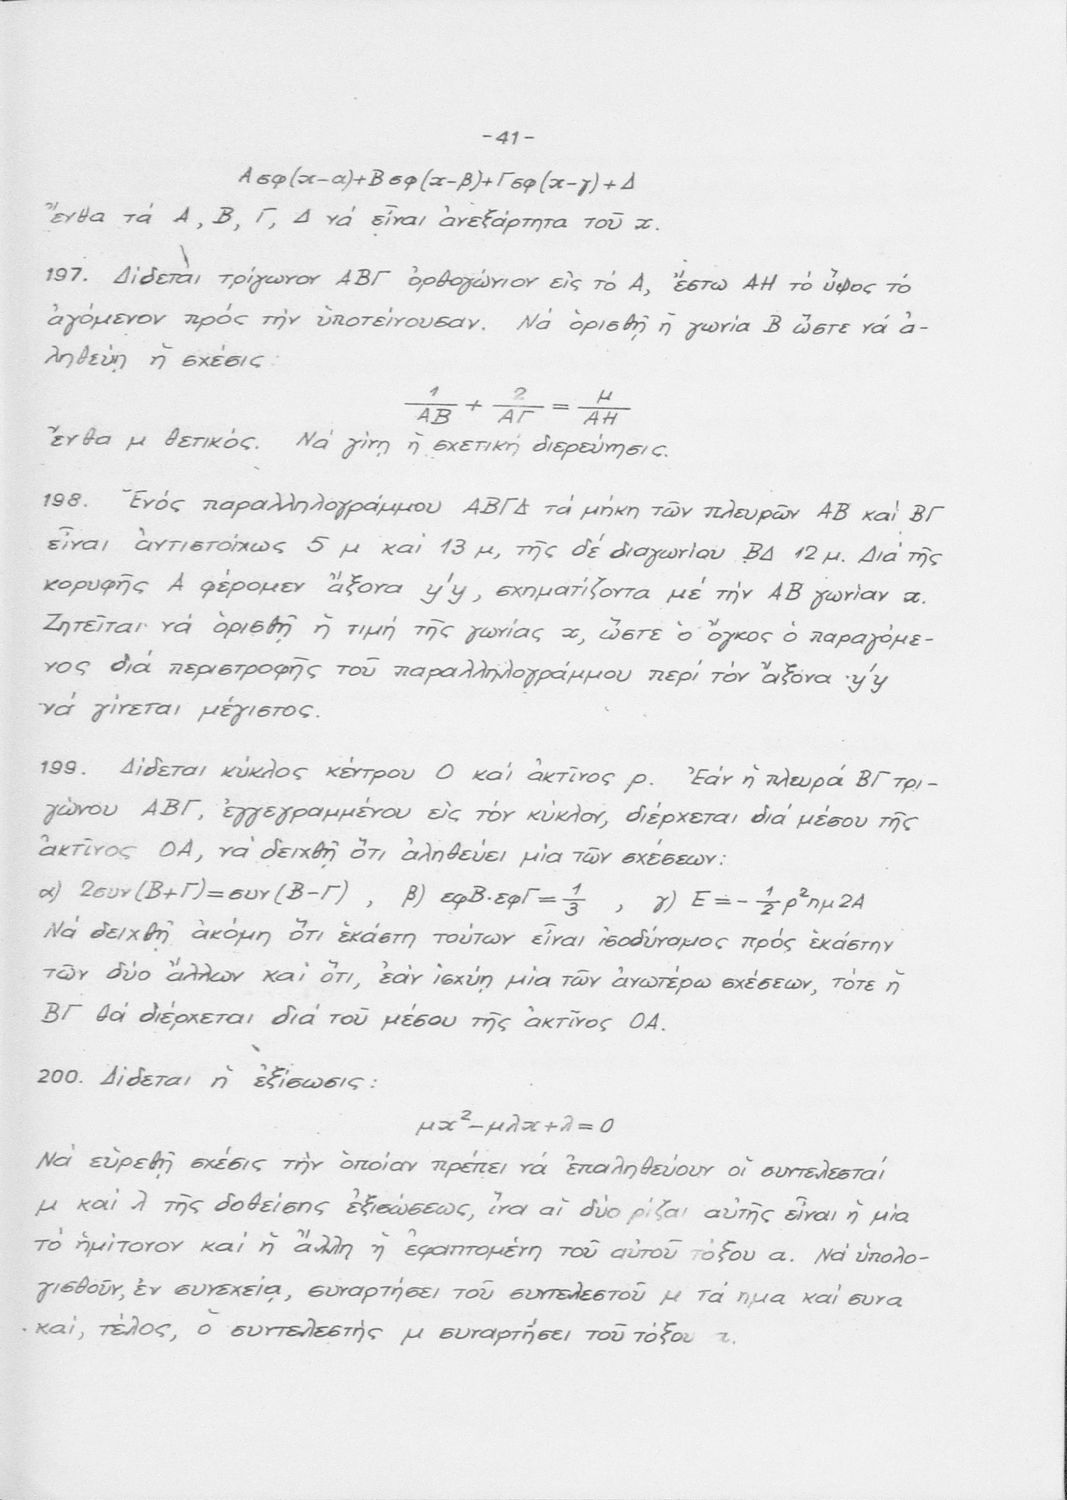 -41-
Aσφ(x-α)+Bσφ(x-β)+Γσφ(x-γ)+Δ
ἔνθα τά A, B, Γ, Δ νά εἶναι ἀνεξάρτητα τοῦ x.
197. Δίδεται τρίγωνον ΑΒΓ ὀρθογώνιον εἰς τό Α, ἔστω ΑΗ τό ὕψος τό
ἀγόμενον πρός τήν ὑποτείνουσαν. Νά ὁρισθῇ ἡ γωνία Β ὥστε νά ἀ-
ληθεύῃ ἡ σχέσις:
1/AB + 2/ΑΓ = μ/ΑΗ
ἔνθα μ θετικός. Νά γίνῃ ἡ σχετική διερεύνησις.
198. Ἑνός παραλληλογράμμου ΑΒΓΔ τά μήκη τῶν πλευρῶν ΑΒ καί ΒΓ
εἶναι ἀντιστοίχως 5 μ καί 13 μ, τῆς δέ διαγωνίου ΒΔ 12 μ. Διά τῆς
κορυφῆς Α φέρομεν ἄξονα y'y, σχηματίζοντα μέ τήν ΑΒ γωνίαν x.
Ζητεῖται νά ὁρισθῇ ἡ τιμή τῆς γωνίας x, ὥστε ὁ ὄγκος ὁ παραγόμε-
νος διά περιστροφῆς τοῦ παραλληλογράμμου περί τόν ἄξονα y'y
νά γίνεται μέγιστος.
199. Δίδεται κύκλος κέντρου Ο καί ἀκτῖνος ρ. Ἐάν ἡ πλευρά ΒΓ τρι-
γώνου ΑΒΓ, ἐγγεγραμμένου εἰς τόν κύκλον, διέρχεται διά μέσου τῆς
ἀκτῖνος ΟΑ, νά δειχθῇ ὅτι ἀληθεύει μία τῶν σχέσεων:
α) 2συν(Β+Γ)=συν(Β-Γ) , β) εφΒ·εφΓ=1/3 , γ) Ε=-1/2 ρ²ημ2Α
Νά δειχθῇ ἀκόμη ὅτι ἑκάστη τούτων εἶναι ἰσοδύναμος πρός ἑκάστην
τῶν δύο ἄλλων καί ὅτι, ἐάν ἰσχύῃ μία τῶν ἀνωτέρω σχέσεων, τότε ἡ
ΒΓ θά διέρχεται διά τοῦ μέσου τῆς ἀκτῖνος ΟΑ.
200. Δίδεται ἡ ἐξίσωσις:
μx²-μλx+λ=0
Νά εὑρεθῇ σχέσις τήν ὁποίαν πρέπει νά ἐπαληθεύουν οἱ συντελεσταί
μ καί λ τῆς δοθείσης ἐξισώσεως, ἵνα αἱ δύο ρίζαι αὐτῆς εἶναι ἡ μία
τό ἡμίτονον καί ἡ ἄλλη ἡ ἐφαπτομένη τοῦ αὐτοῦ τόξου α. Νά ὑπολο-
γισθοῦν, ἐν συνεχείᾳ, συναρτήσει τοῦ συντελεστοῦ μ τά ημα καί συνα
καί, τέλος, ὁ συντελεστής μ συναρτήσει τοῦ τόξου